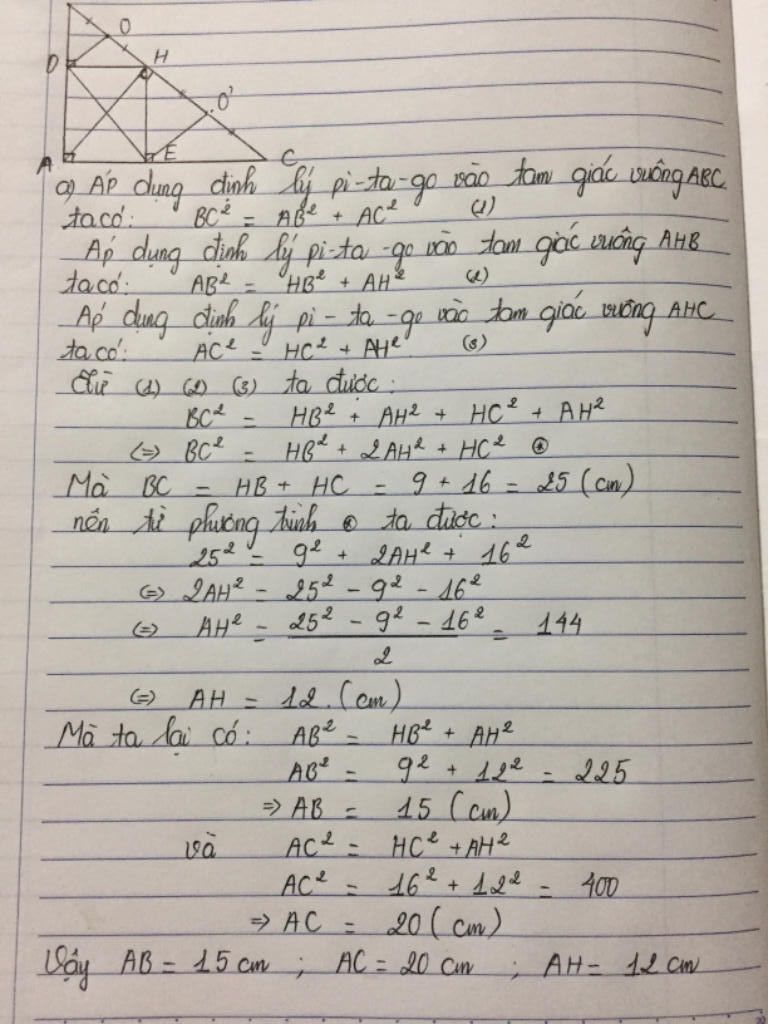 O
D
H
O'
A
E
C
a) Áp dụng định lý pi-ta-go vào tam giác vuông ABC
ta có: BC² = AB² + AC² (1)
Áp dụng định lý pi-ta-go vào tam giác vuông AHB
ta có: AB² = HB² + AH² (2)
Áp dụng định lý pi-ta-go vào tam giác vuông AHC
ta có: AC² = HC² + AH² (3)
Từ (1) (2) (3) ta được:
BC² = HB² + AH² + HC² + AH²
(=) BC² = HB² + 2AH² + HC² ⊛
Mà BC = HB + HC = 9 + 16 = 25 (cm)
nên từ phương trình ⊛ ta được:
25² = 9² + 2AH² + 16²
(=) 2AH² = 25² - 9² - 16²
(=) AH² = 25² - 9² - 16² = 144
2
(=) AH = 12. (cm)
Mà ta lại có: AB² = HB² + AH²
AB² = 9² + 12² = 225
=> AB = 15 (cm)
và AC² = HC² + AH²
AC² = 16² + 12² = 400
=> AC = 20 (cm)
Vậy AB = 15 cm ; AC = 20 cm ; AH = 12 cm